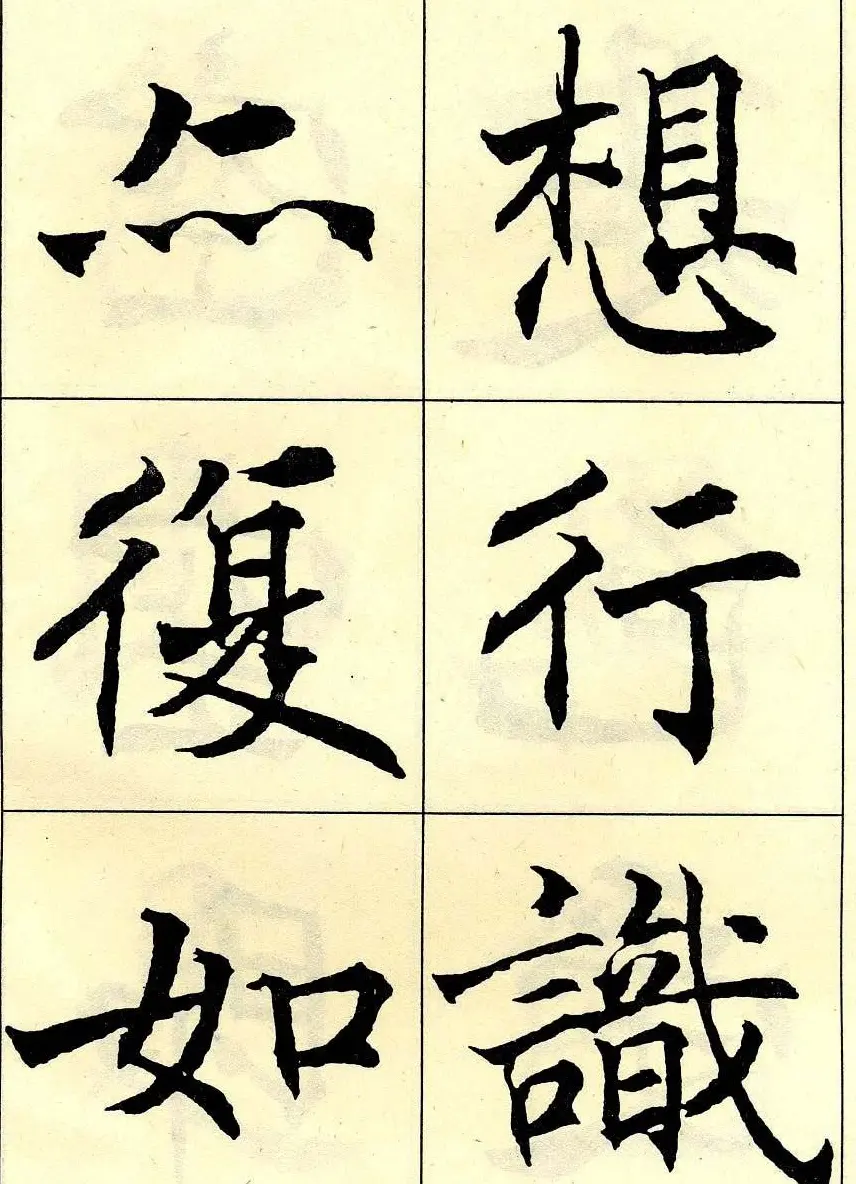 想行識
亦復如